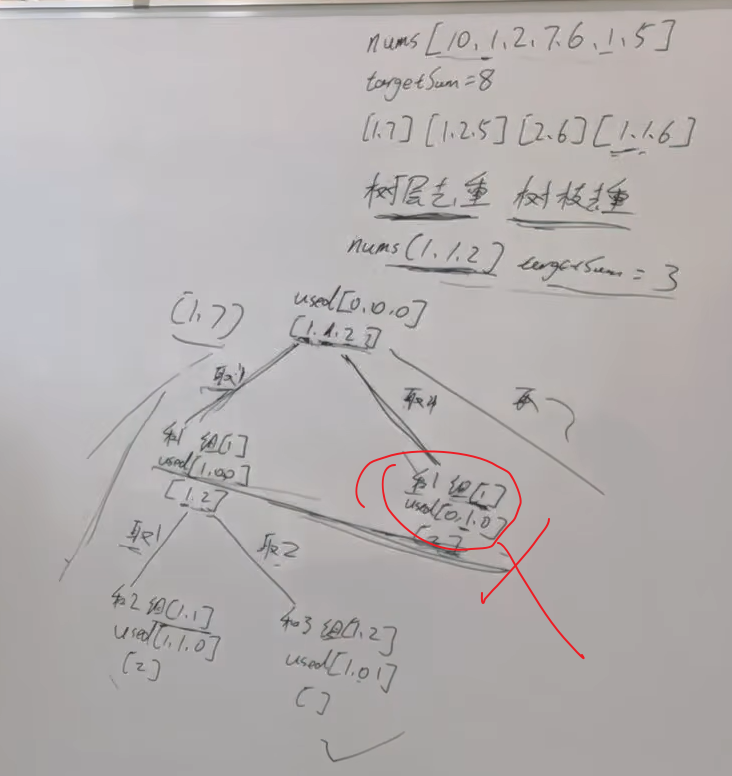 nums[10,1,2,7,6,1,5]
targetSum=8
[1,7] [1,2,5] [2,6] [1,1,6]
树层去重 树枝去重
nums[1,1,2] targetSum=3
[1,7]
used[0,0,0]
[1,1,2]
取1
取1
取2
和1 组[1]
used[1,0,0]
[1,2]
和1 组[1]
used[0,1,0]
[2]
取1
取2
和2 组[1,1]
used[1,1,0]
[2]
和3 组[1,2]
used[1,0,1]
[]